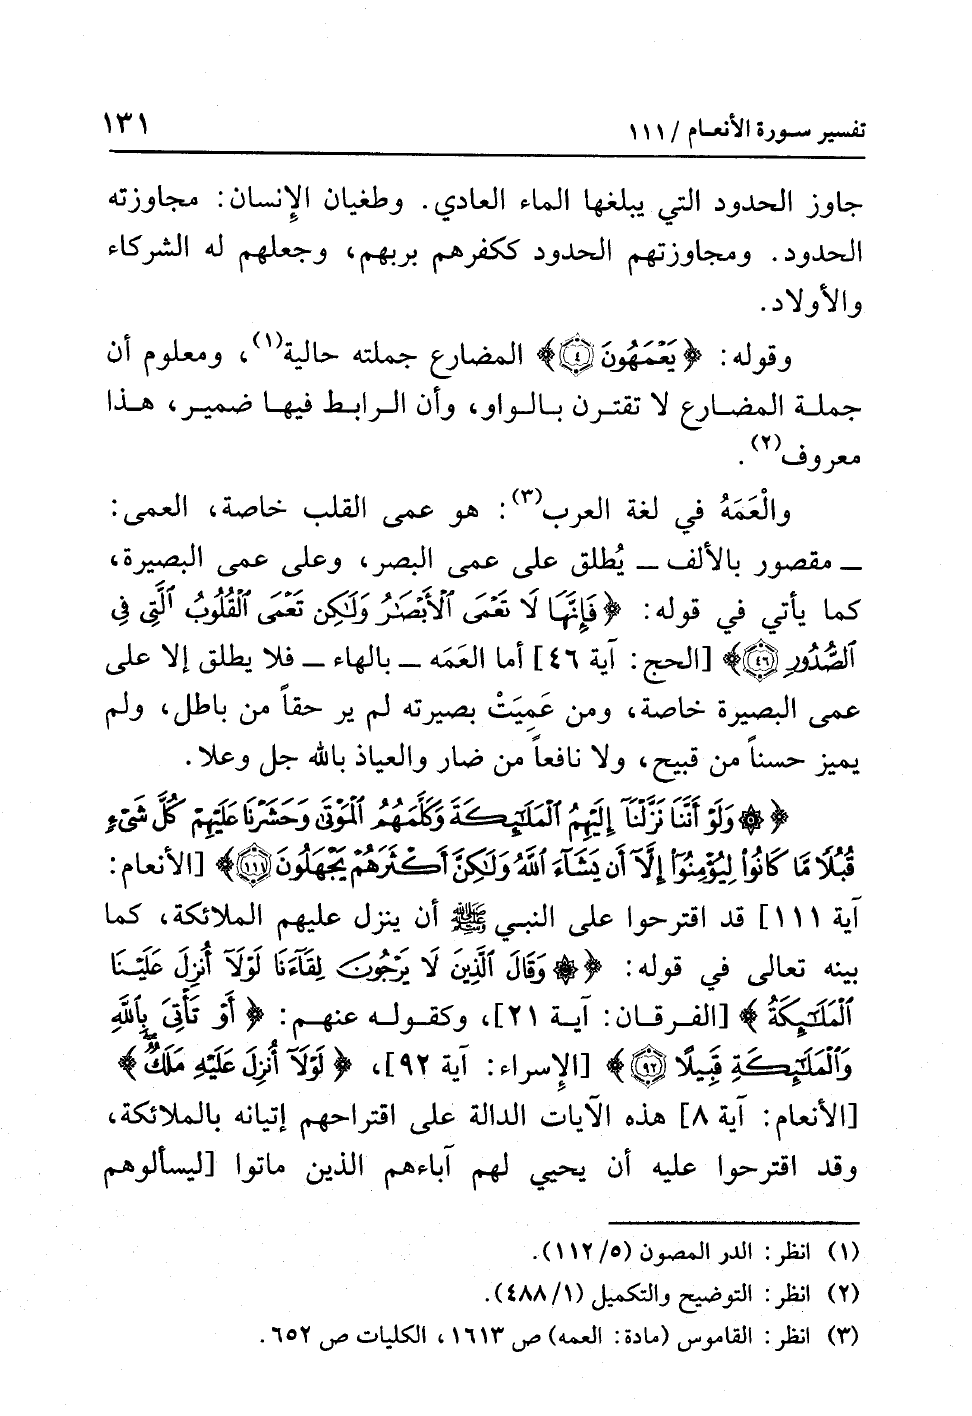 تفسير سورة الأنعام / ١١١
١٣١
جاوز الحدود التي يبلغها الماء العادي. وطغيان الإنسان: مجاوزته
الحدود. ومجاوزتهم الحدود ككفرهم بربهم، وجعلهم له الشركاء
والأولاد.
وقوله: ﴿يَعْمَهُونَ ٤﴾ المضارع جملته حالية(١)، ومعلوم أن
جملة المضارع لا تقترن بالواو، وأن الرابط فيها ضمير، هذا
معروف(٢).
والْعَمَهُ في لغة العرب(٣): هو عمى القلب خاصة، العمى:
ـ مقصور بالألف ـ يُطلق على عمى البصر، وعلى عمى البصيرة،
كما يأتي في قوله: ﴿فَإِنَّهَا لَا تَعْمَى ٱلْأَبْصَٰرُ وَلَٰكِن تَعْمَى ٱلْقُلُوبُ ٱلَّتِى فِى
ٱلصُّدُورِ ٤٦﴾ [الحج: آية ٤٦] أما العَمَه ـ بالهاء ـ فلا يطلق إلا على
عمى البصيرة خاصة، ومن عَمِيَتْ بصيرته لم ير حقاً من باطل، ولم
يميز حسناً من قبيح، ولا نافعاً من ضار والعياذ بالله جل وعلا.
﴿۞ وَلَوْ أَنَّنَا نَزَّلْنَآ إِلَيْهِمُ ٱلْمَلَٰٓئِكَةَ وَكَلَّمَهُمُ ٱلْمَوْتَىٰ وَحَشَرْنَا عَلَيْهِمْ كُلَّ شَىْءٍ
قُبُلًا مَّا كَانُوا۟ لِيُؤْمِنُوٓا۟ إِلَّآ أَن يَشَآءَ ٱللَّهُ وَلَٰكِنَّ أَكْثَرَهُمْ يَجْهَلُونَ ١١١﴾ [الأنعام:
آية ١١١] قد اقترحوا على النبي ﷺ أن ينزل عليهم الملائكة، كما
بينه تعالى في قوله: ﴿۞ وَقَالَ ٱلَّذِينَ لَا يَرْجُونَ لِقَآءَنَا لَوْلَآ أُنزِلَ عَلَيْنَا
ٱلْمَلَٰٓئِكَةُ﴾ [الفرقان: آية ٢١]، وكقوله عنهم: ﴿أَوْ تَأْتِىَ بِٱللَّهِ
وَٱلْمَلَٰٓئِكَةِ قَبِيلًا ٩٢﴾ [الإسراء: آية ٩٢]، ﴿لَوْلَآ أُنزِلَ عَلَيْهِ مَلَكٌ﴾
[الأنعام: آية ٨] هذه الآيات الدالة على اقتراحهم إتيانه بالملائكة،
وقد اقترحوا عليه أن يحيي لهم آباءهم الذين ماتوا [ليسألوهم
(١) انظر: الدر المصون (٥/ ١١٢).
(٢) انظر: التوضيح والتكميل (١/ ٤٨٨).
(٣) انظر: القاموس (مادة: العمه) ص ١٦١٣، الكليات ص ٦٥٢.